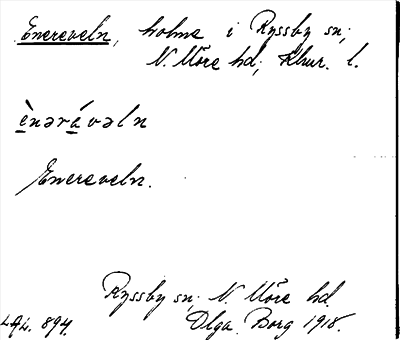 Enereveln, holme i Ryssby sn;
N. Möre hd, Klmr. l.
ènərávəln
Enereveln.
Ryssby sn, N. Möre hd.
894. Olga Borg 1918.